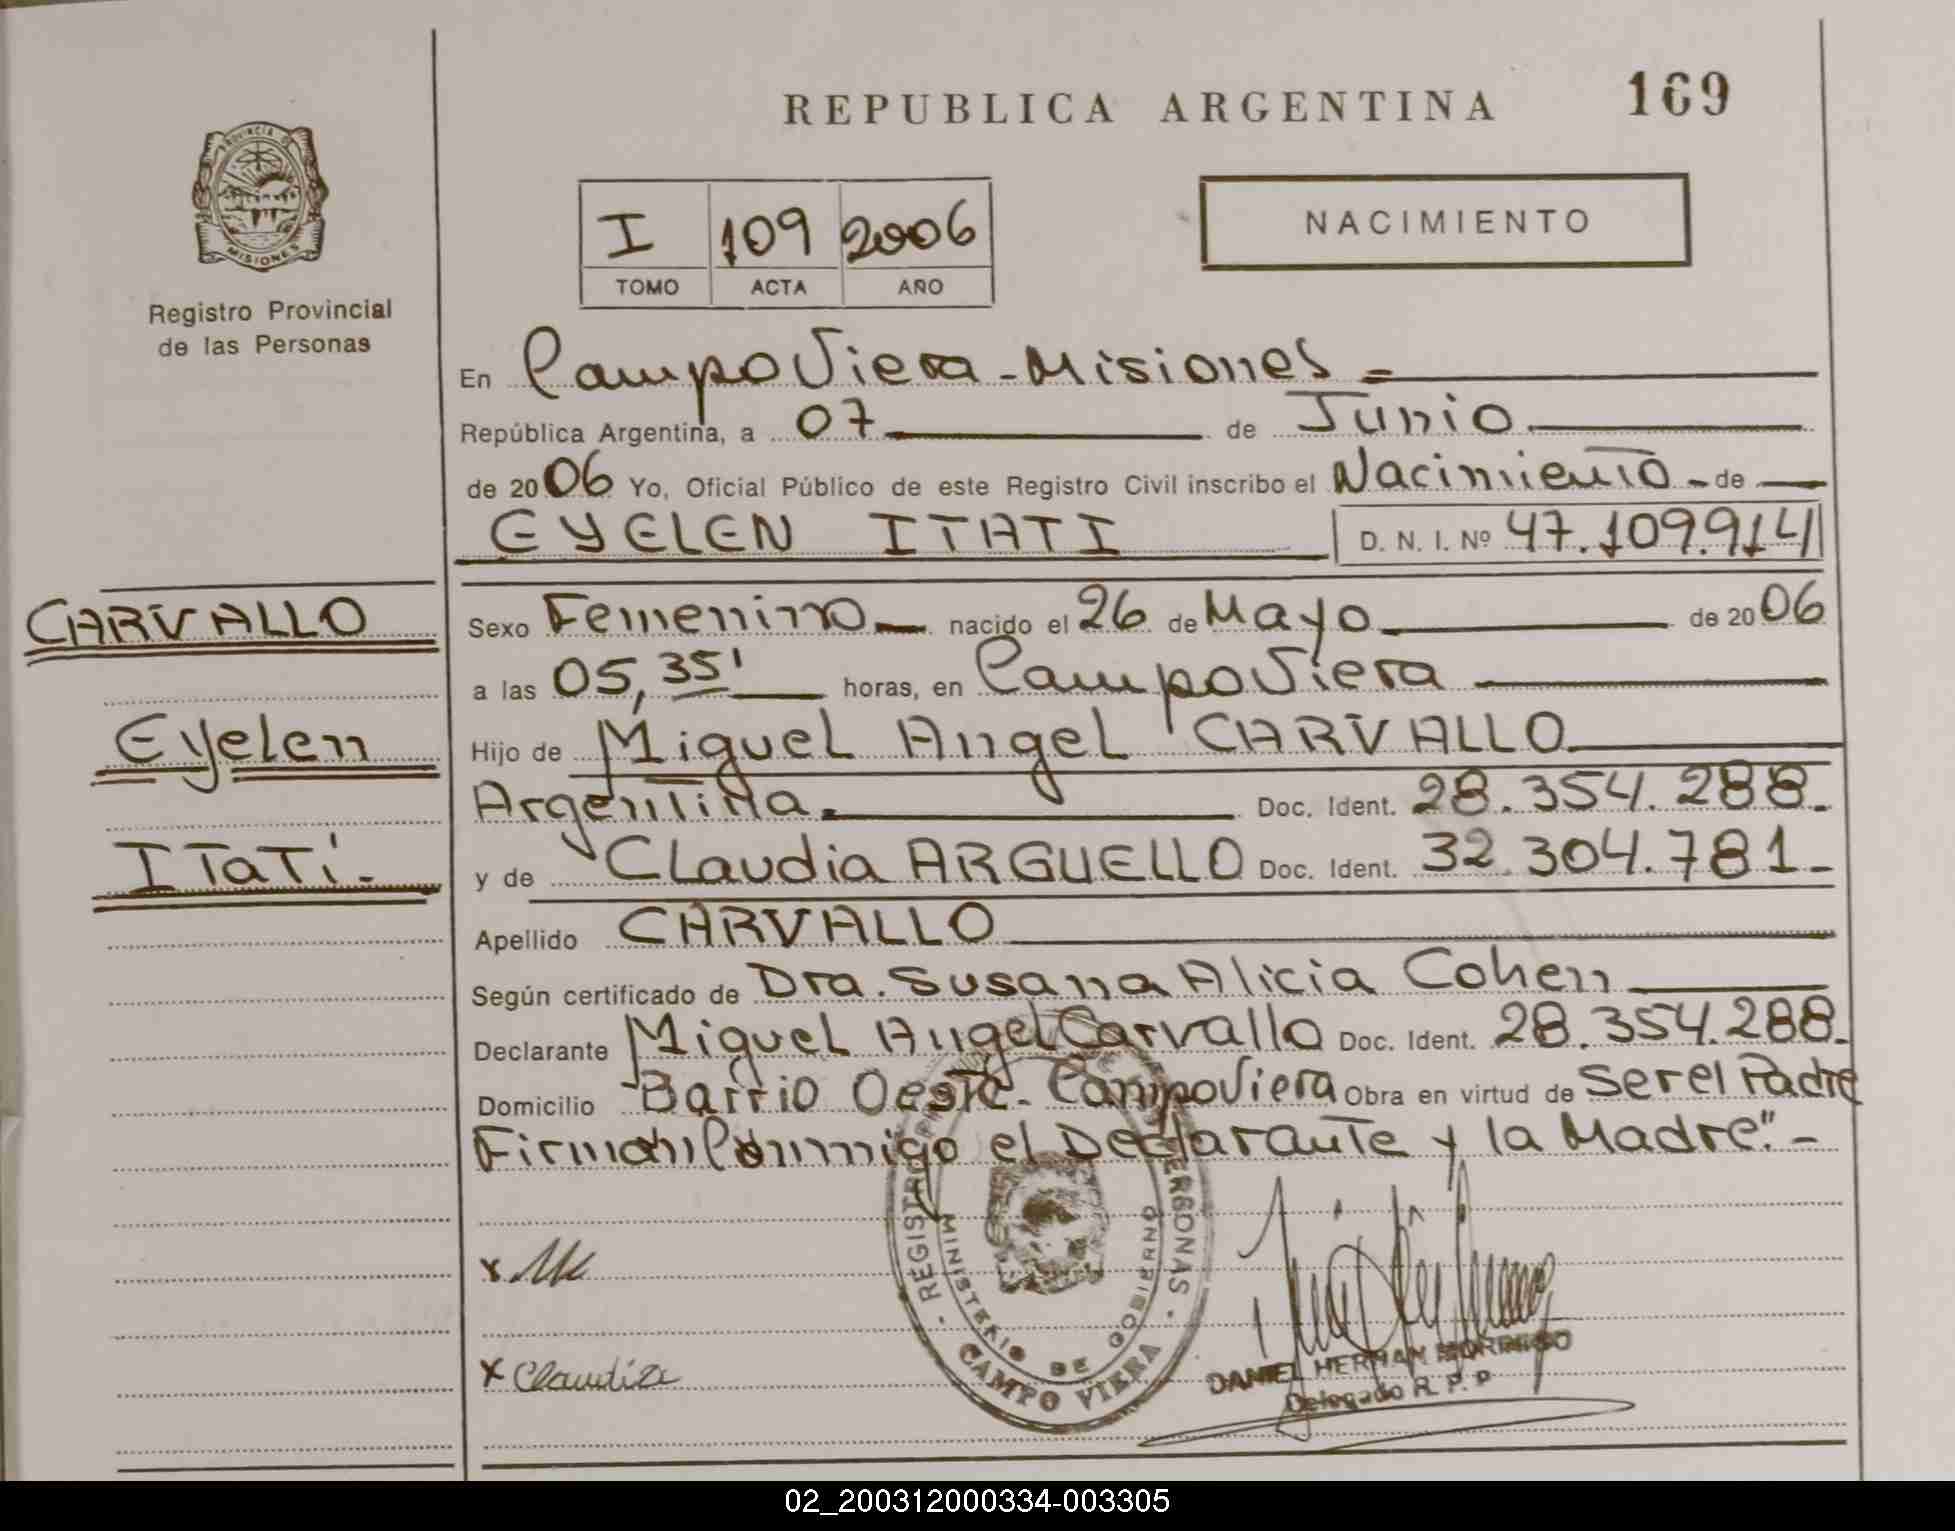 REPUBLICA ARGENTINA
169
PROVINCIA DE
MISIONES
Registro Provincial
de las Personas
I 109 2006
TOMO ACTA AÑO
NACIMIENTO
En Campo Viera - Misiones =
República Argentina, a 07 de Junio
de 2006 Yo, Oficial Público de este Registro Civil inscribo el Nacimiento - de
EYELEN ITATI D. N. I. Nº 47.109.914
CARVALLO
Eyelen
ITaTí.-
Sexo Femenino nacido el 26 de Mayo de 2006
a las 05,35' horas, en Campo Viera
Hijo de Miguel Angel CARVALLO
Argentina. Doc. Ident. 28.354.288.
y de Claudia ARGUELLO Doc. Ident. 32.304.781.-
Apellido CARVALLO
Según certificado de Dra. Susana Alicia Cohen
Declarante Miguel Angel Carvallo Doc. Ident. 28.354.288.
Domicilio Barrio Oeste - Campo Viera Obra en virtud de Ser el Padre
Firman Conmigo el Declarante y la Madre".-
x
x Claudia
REGISTRO PERSONAS
MINISTERIO DE GOBIERNO
CAMPO VIERA
DANIEL HERNAN MORINIGO
Delegado R. P. P
02_200312000334-003305